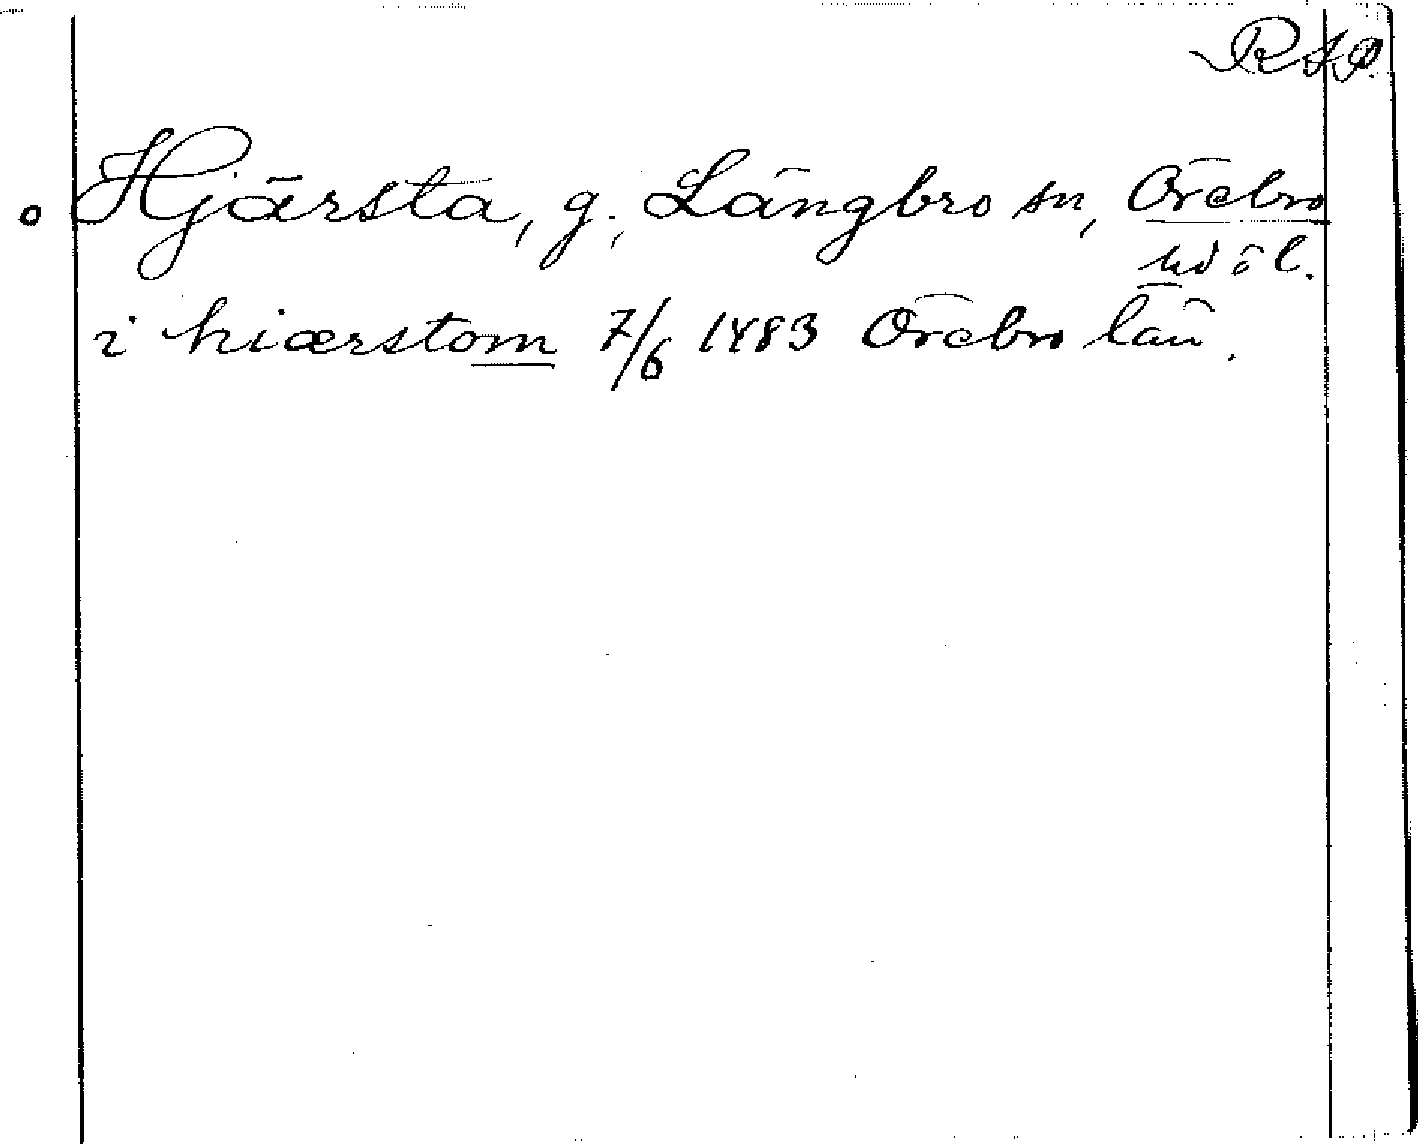 RAP.
Hjärsta, g., Längbro sn, Örebro
i hiærstom 7/6 1483 Örebro län.